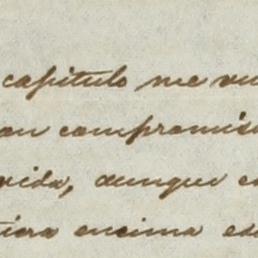 capitulo me vu
an compromiso
vida, aunque e
tiera encima es